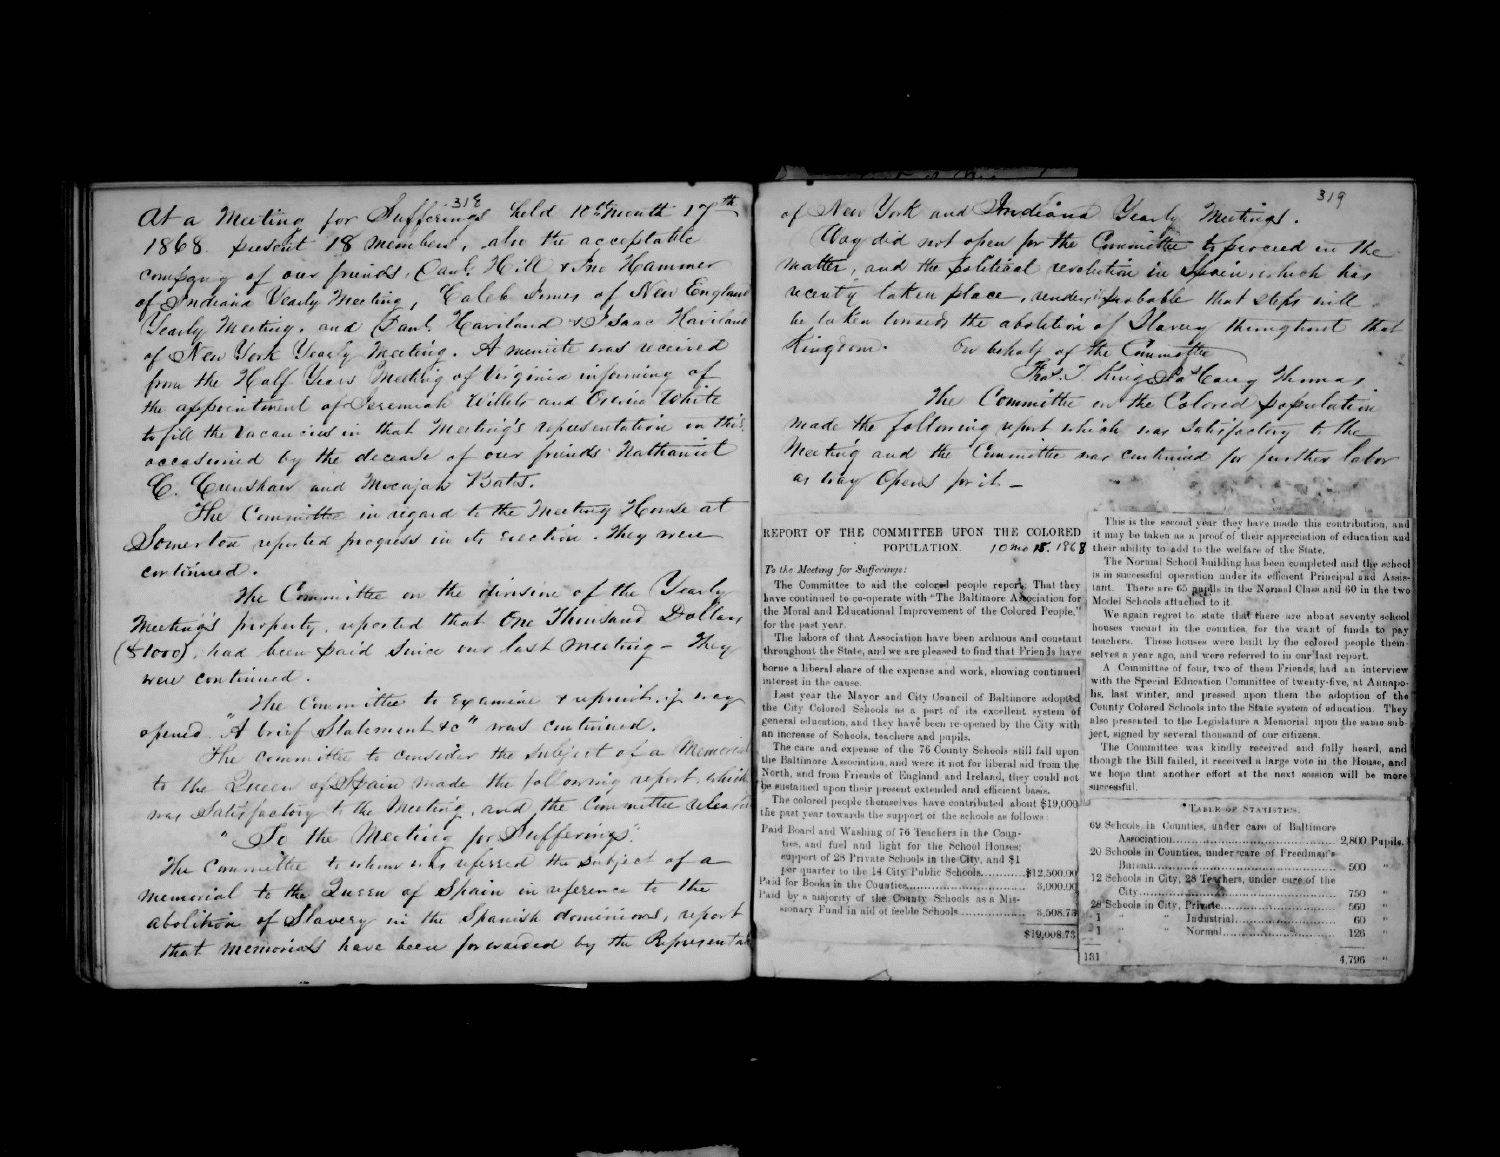 318
At a Meeting for Sufferings held 10th month 17th
1868. present 18 members, also the acceptable
company of our friends, Danl. Hill & Jno Hammer
of Indiana Yearly Meeting, Caleb Jones of New England
Yearly Meeting, and Danl. Haviland & Isaac Haviland
of New York Yearly Meeting. A minute was received
from the Half Years Meeting of Virginia informing of
the appointment of Jeremiah Willets and White
to fill the vacancies in that Meeting's representation in this,
occasioned by the decease of our friends Nathaniel
C. Crenshaw and Micajah Bates.
The Committee in regard to the Meeting House at
Somerton reported progress in its erection. They were
continued.
The Committee on the division of the Yearly
Meeting's property, reported that One Thousand Dollars
($1000), had been paid since our last meeting – They
were continued.
The Committee to examine & reprint, if way
opened "A brief Statement &c" was continued.
The committee to consider the subject of a Memorial
to the Queen of Spain made the following report, which
was satisfactory to the Meeting, and the Committee released
"To the Meeting for Sufferings".
The Committee to whom was referred the subject of a
memorial to the Queen of Spain in reference to the
abolition of Slavery in the Spanish dominions, report
that memorials have been forwarded by the Representa
319
of New York and Indiana Yearly Meetings.
Way did not open for the Committee to proceed in the
matter, and the political revolution in Spain, which has
recently taken place, renders it probable that steps will
be taken towards the abolition of Slavery throughout that
Kingdom. On behalf of the Committee
Thos. T King Carey Thomas
The Committee on the Colored population
made the following report which was satisfactory to the
Meeting and the Committee was continued for further labor
as way opens for it –
REPORT OF THE COMMITTEE UPON THE COLORED
POPULATION. 10 mo 18. 1868
To the Meeting for Sufferings:
The Committee to aid the colored people report: That they
have continued to co-operate with "The Baltimore Association for
the Moral and Educational Improvement of the Colored People,"
for the past year.
The labors of that Association have been arduous and constant
throughout the State, and we are pleased to find that Friends have
borne a liberal share of the expense and work, showing continued
interest in the cause.
Last year the Mayor and City Council of Baltimore adopted
the City Colored Schools as a part of its excellent system of
general education, and they have been re-opened by the City with
an increase of Schools, teachers and pupils.
The care and expense of the 76 County Schools still fall upon
the Baltimore Association, and were it not for liberal aid from the
North, and from Friends of England and Ireland, they could not
be sustained upon their present extended and efficient basis.
The colored people themselves have contributed about $19,000
the past year towards the support of the schools as follows:
Paid Board and Washing of 76 Teachers in the Coun-
ties, and fuel and light for the School Houses;
support of 28 Private Schools in the City, and $1
per quarter to the 14 City Public Schools..........$12,500.00
Paid for Books in the Counties.......................... 3,000.00
Paid by a majority of the County Schools as a Mis-
sionary Fund in aid of feeble Schools............... 3,508.73
$19,008.73
This is the second year they have made this contribution, and
it may be taken as a proof of their appreciation of education and
their ability to add to the welfare of the State.
The Normal School building has been completed and the school
is in successful operation under its efficient Principal and Assis-
tant. There are 65 pupils in the Normal Class and 60 in the two
Model Schools attached to it.
We again regret to state that there are about seventy school
houses vacant in the counties, for the want of funds to pay
teachers. These houses were built by the colored people them-
selves a year ago, and were referred to in our last report.
A Committee of four, two of them Friends, had an interview
with the Special Education Committee of twenty-five, at Annapo-
lis, last winter, and pressed upon them the adoption of the
County Colored Schools into the State system of education. They
also presented to the Legislature a Memorial upon the same sub-
ject, signed by several thousand of our citizens.
The Committee was kindly received and fully heard, and
though the Bill failed, it received a large vote in the House, and
we hope that another effort at the next session will be more
successful.
TABLE OF STATISTICS.
69 Schools in Counties, under care of Baltimore
Association........................................... 2,800 Pupils.
20 Schools in Counties, under care of Freedman's
Bureau................................................ 500 "
12 Schools in City, 28 Teachers, under care of the
City.................................................... 750 "
28 Schools in City, Private............................ 560 "
1 " " Industrial......................... 60 "
1 " " Normal............................ 126 "
131 4,796 "